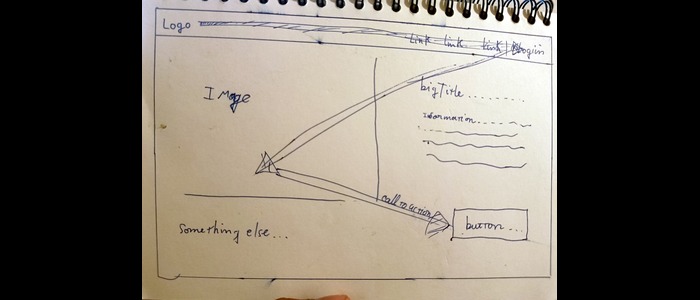 Logo
Link link Link | Login
Image
big Title ........
Information....
call to action
button ...
Something else...